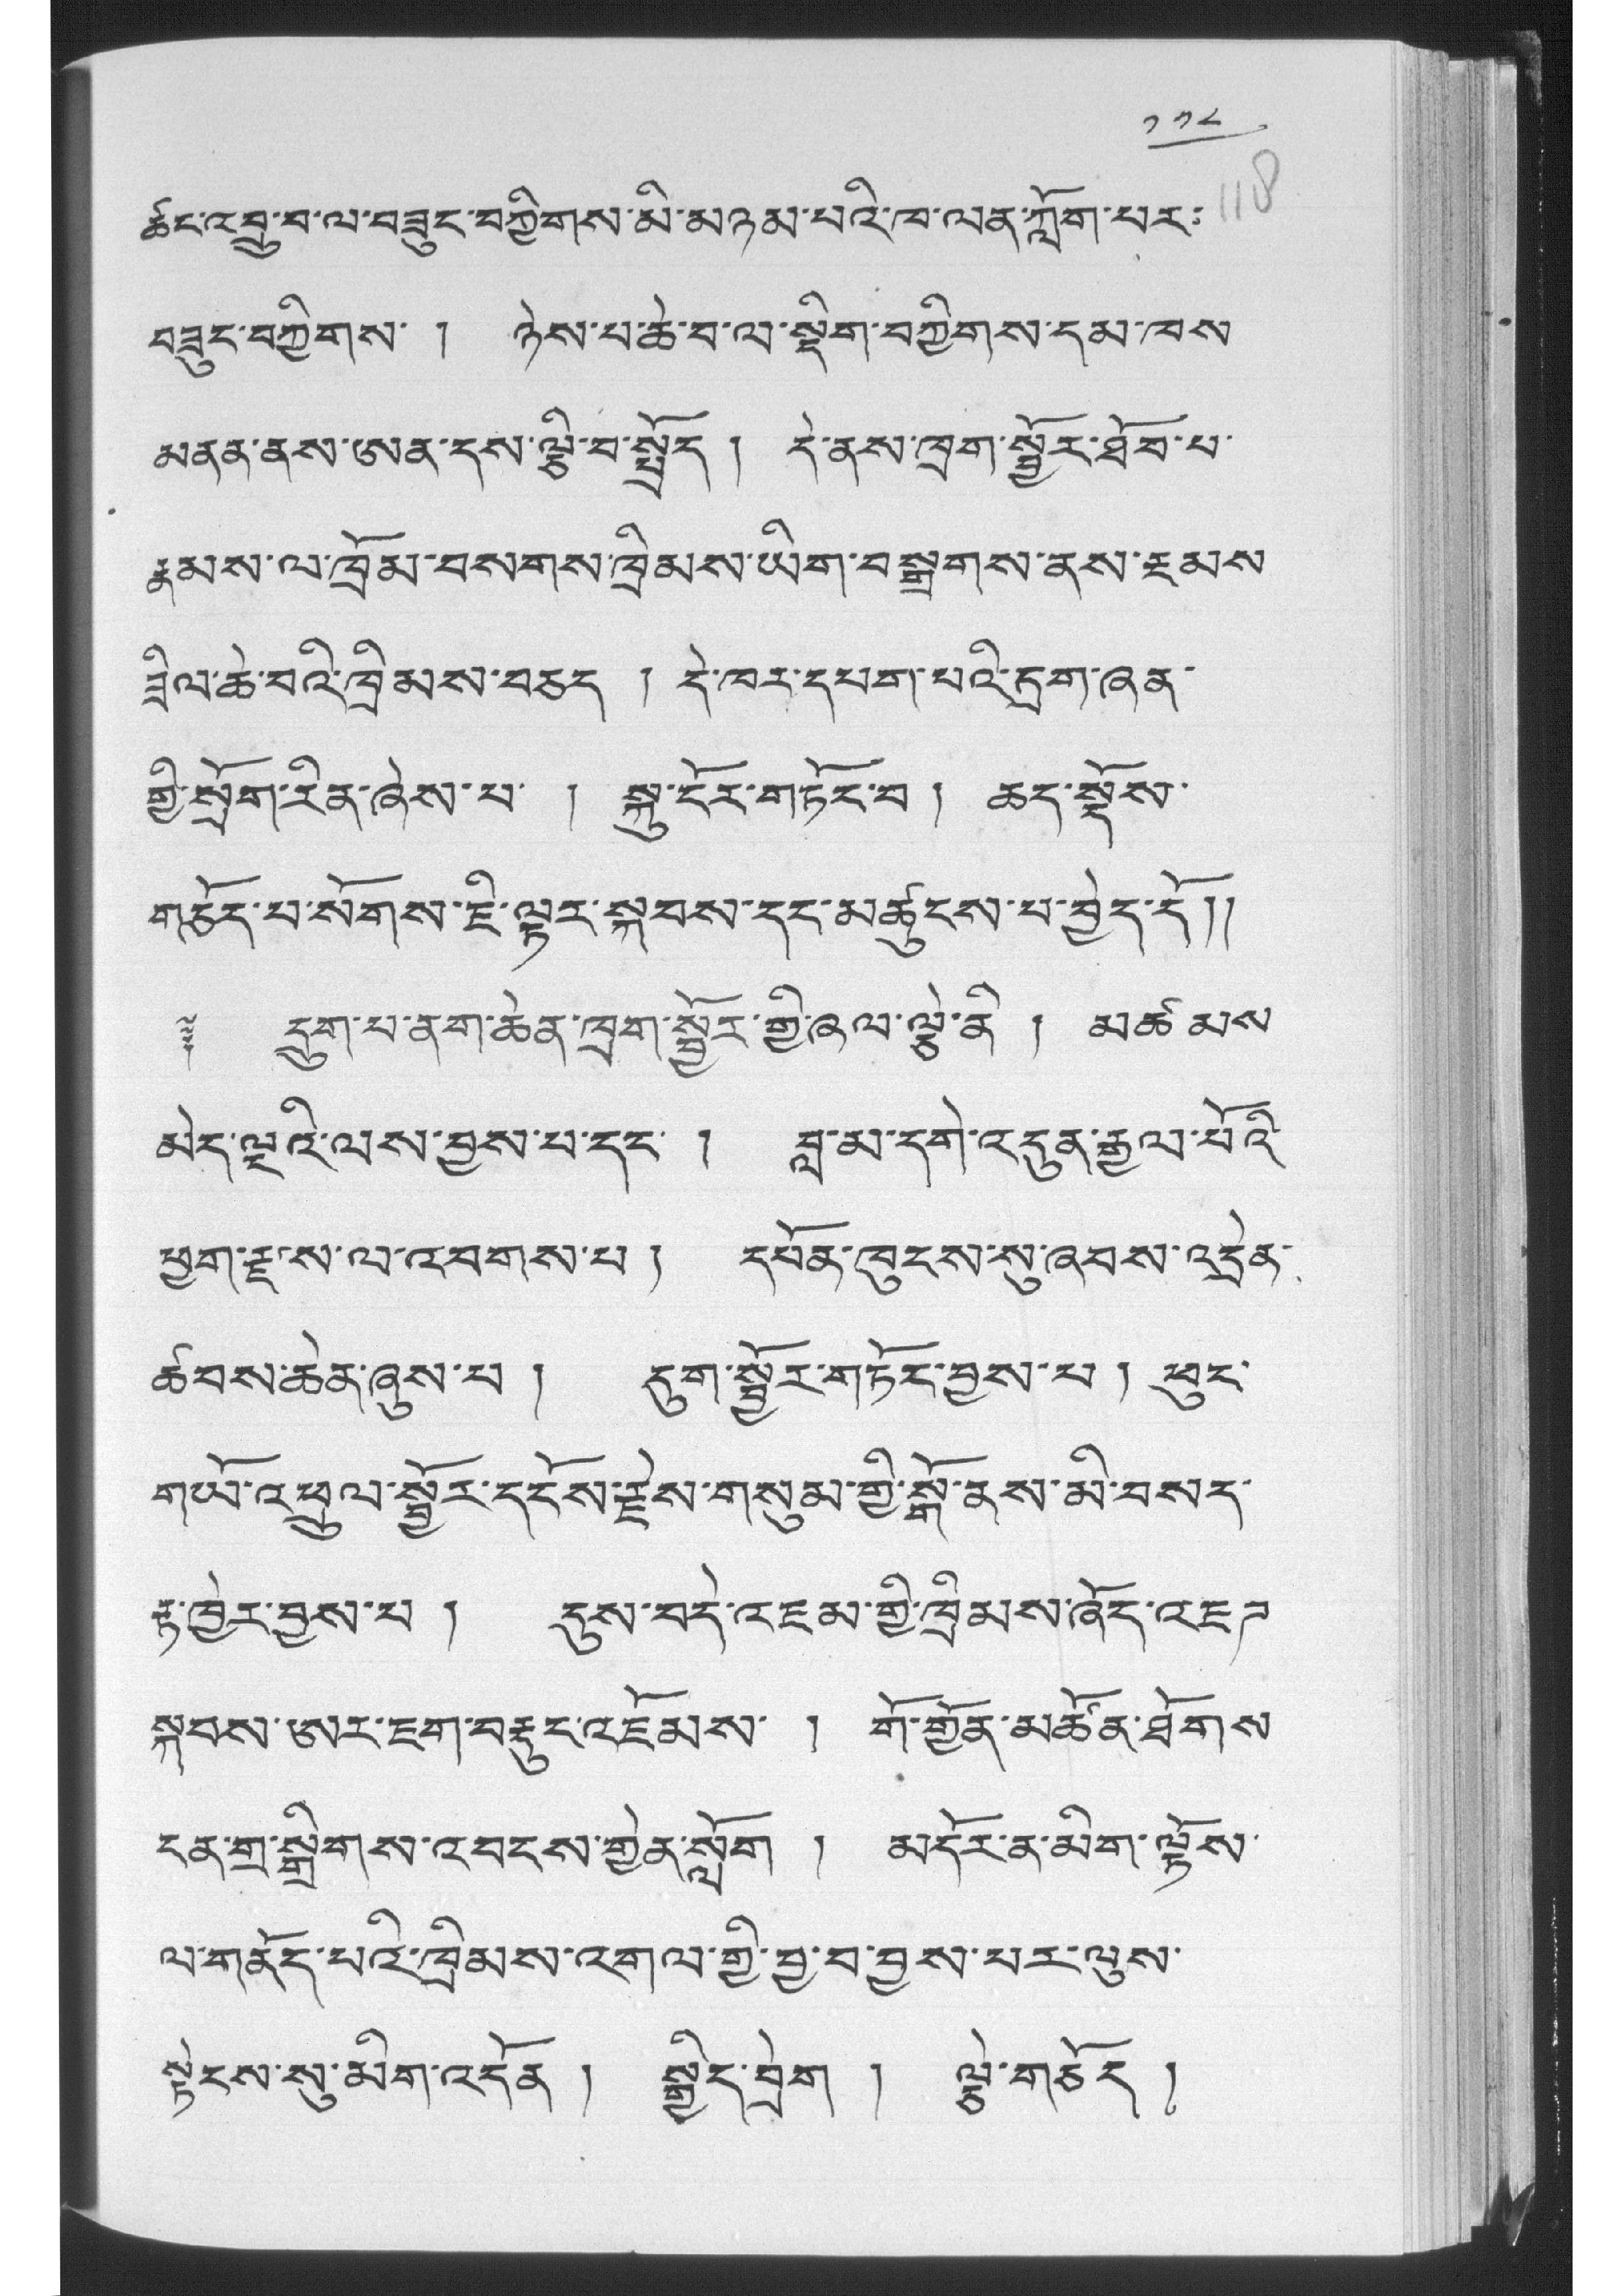 ༡༡༨
118
ཚང་འབྲུ་བ་ལ་བཟུང་བཀྱིགས་མི་མཉམ་པའི་ཁ་ལན་ཀློག་པར་
བཟུང་བཀྱིགས་ ། ཉེས་པ་ཆེ་བ་ལ་སྡིག་བཀྱིགས་དམ་ཁས
མནན་ནས་ཨན་དས་ལྕི་བ་སྤྲོད། དེ་ནས་ཁྲག་སྦྱོར་ཐོབ་པ་
རྣམས་ལ་ཁྲོམ་བསགས་ཁྲིམས་ཡིག་བསྒྲགས་ནས་རྔམས
ཟིལ་ཆེ་བའི་ཁྲིམས་བཅད ། དེ་ཁར་དཔག་པའི་དྲག་ཞན་
གྱི་སྲོག་རིན་ཞེས་པ ། སྐུ་ངོར་གཏོང་བ། ཆད་སྡོས་
གཅོད་པ་སོགས་ཇི་ལྟར་སྐབས་དང་མཚུངས་པ་བྱེད་དོ།།
༈ དྲུག་པ་ནག་ཆེན་ཁྲག་སྦྱོར་གྱི་ཞལ་ལྕེ་ནི ། མཚམས
མེད་ལྔའི་ལས་བྱས་པ་དང་ ། བླ་མ་དགེ་འདུན་རྒྱལ་པོའི
ཕྱག་རྫས་ལ་འབགས་པ། དཔོན་ཁུངས་སུ་ཞབས་འདྲེན་
ཚབས་ཆེན་ཞུས་པ ། དུག་སྦྱོར་གཏོང་བྱས་པ། ཕུང་
གཡོ་འཕྲུལ་སྦྱོར་དངོས་རྗེས་གསུམ་གྱི་སྒོ་ནས་མི་བསད་
རྟ་ཁྱེར་བྱས་པ ། དུས་བདེ་འཇམ་གྱི་ཁྲིམས་ཞོད་འཇཊ
སྐབས་ཨར་ཇག་བརྡུང་འཇོམས་ ། གོ་གྱོན་མཚོན་ཐོགས
ངན་གྲ་སྒྲིགས་འབངས་གྱེན་སློག ། མདོར་ན་མིག་ལྟོས་
ལ་གནོད་པའི་ཁྲིམས་འགལ་གྱི་བྱ་བ་བྱས་པར་ལུས་
སྟེངས་སུ་མིག་འདོན། སྒྱིད་བྲེག ། ལྕེ་གཅོད །